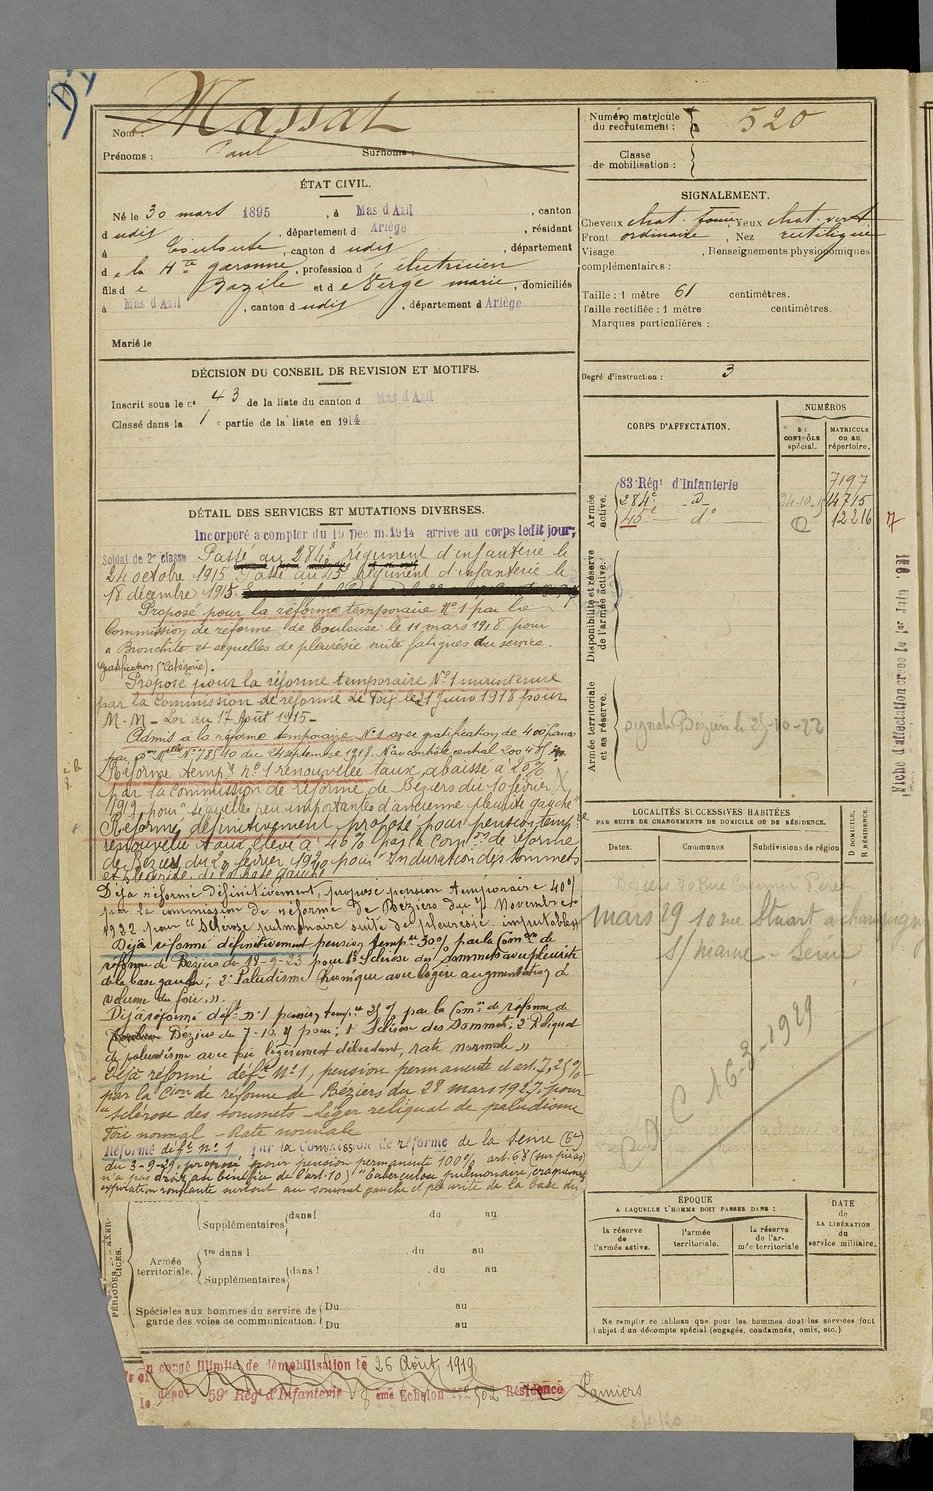 Massat
Nom :
Prénoms : Paul Surnoms :
ÉTAT CIVIL.
Né le 30 mars 1895, à Mas d'Azil, canton
dudit, département d Ariège, résidant
à Toulouse, canton dudit, département
de la Hte garonne, profession d'électricien
fils de Bazile et de Verge marie, domiciliés
à Mas d'Azil, canton dudit, département d Ariège
Marié le
DÉCISION DU CONSEIL DE REVISION ET MOTIFS.
Inscrit sous le n° 43 de la liste du canton d Mas d'Azil
Classé dans la 1 e partie de la liste en 1914
DÉTAIL DES SERVICES ET MUTATIONS DIVERSES.
Incorporé a compter du 19 Dec m. 1914 arrive au corps ledit jour;
Soldat de 2e classe Passé au 284e régiment d'infanterie le
24 octobre 1915. Passé au 45 Régiment d'infanterie le
18 décembre 1915.
Proposé pour la réforme temporaire N° 1 par la
Commission de réforme de Toulouse le 11 mars 1918 pour
Bronchite et séquelles de pleurésie suite fatigues du service.
Gratification (Catégorie).
Proposé pour la réforme temporaire N° 1 maintenue
par la Commission de réforme de Foix le 21 Juin 1918 pour
M. M - Loi du 17 Août 1915 -
Admis à la réforme temporaire N° 1 avec gratification de 400 francs
par don Mielle N° 785-10 du 24 septembre 1918. N° au contrôle central 200 451
Réforme temp re n° 1 renouvelée taux abaissé à 20%
par la commission de réforme de Béziers du 10 février
1919 pour "séquelles peu importantes d'ancienne pleurite gauche"
Réformé définitivement, proposé pour pension temp re
renouvelée taux élevé à 40% par la Com on de réforme
de Béziers du 20 février 1920 pour "Induration des sommets
et pleurite de la base gauche
Déjà réformé définitivement, proposé pension temporaire 40%
par la commission de réforme de Béziers du 7 Novembre
1922 pour "Sclérose pulmonaire suite de pleurésie imputable
Déjà réformé définitivement pension temp re 30% par la Com on de
réforme de Béziers du 18-9-23 pour 1° Sclérose des sommets avec pleurite
de la base gauche; 2° Paludisme chronique avec légère augmentation du
volume du foie."
Déjà réformé déf t n° 1 pension temp re 25% par la Com on de réforme de
Béziers du 7-10-24 pour; 1° Sclérose des sommets; 2° Reliquat
de paludisme avec foie légèrement débordant, rate normale "
Déjà réformé déf t N° 1, pension permanente d'art. 7, 25%
par la Cion de réforme de Béziers du 28 mars 1927 pour
"Sclérose des sommets - Léger reliquat de paludisme
Foie normal - Rate normale
Réformé déf t n° 1, par la Commission de réforme de la Seine (6e)
du 3-9-29, proposé pour pension permanente 100% art. 68 (sur pièces)
n'a pas droit au bénéfice de l'art. 10) "Tuberculose pulmonaire, craquements
expiration ronflante surtout au sommet gauche et pleurite de la base du
Supplémentaires dans l du au
Armée territoriale. 1re dans l du au
Supplémentaires dans l du au
Spéciales aux hommes du service de
garde des voies de communication.
Du au
Du au
PÉRIODES
congé illimité de démobilisation le 25 Août 1919
dépôt 59e Régt d'Infanterie ème Echelon N° 502 Résidence Pamiers
Numéro matricule
du recrutement : 520
Classe
de mobilisation :
SIGNALEMENT.
Cheveux chat. foncé Yeux chat. vert
Front ordinaire, Nez rectiligne
Visage, Renseignements physionomiques
complémentaires :
Taille : 1 mètre 61 centimètres.
Taille rectifiée : 1 mètre centimètres.
Marques particulières :
Degré d'instruction : 3
CORPS D'AFFECTATION.
NUMÉROS
DE CONTRÔLE spécial.
MATRICULE OU AU répertoire.
Armée active.
83 Régt d'Infanterie 7197
284e - d° 24-10-15 14715
45e - d° 12216
Disponibilité et réserve de l'armée active.
Armée territoriale et sa réserve.
signalé Béziers le 25-10-22
Fiche d'affectation créée le 1er
LOCALITÉS SUCCESSIVES HABITÉES
PAR SUITE DE CHANGEMENTS DE DOMICILE OU DE RÉSIDENCE.
Dates. Communes Subdivisions de région D DOMICILE. R RÉSIDENCE.
Béziers 70 Rue Casimir Péret
mars 29 10 rue Stuart a champigny
s/ marne - Seine
16-3-1929
ÉPOQUE
A LAQUELLE L'HOMME DOIT PASSER DANS :
la réserve de l'armée active.
l'armée territoriale.
la réserve de l'armée territoriale
DATE de LA LIBÉRATION du service militaire.
Ne remplir ce tableau que pour les hommes dont les services font
l'objet d'un décompte spécial (engagés, condamnés, omis, etc.)